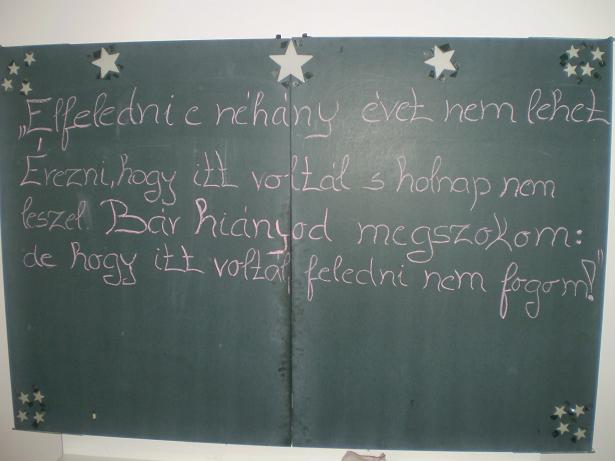 „Elfeledni e néhány évet nem lehet
Érezni, hogy itt voltál s holnap nem
leszel. Bár hiányod megszokom:
de hogy itt voltál feledni nem fogom!"